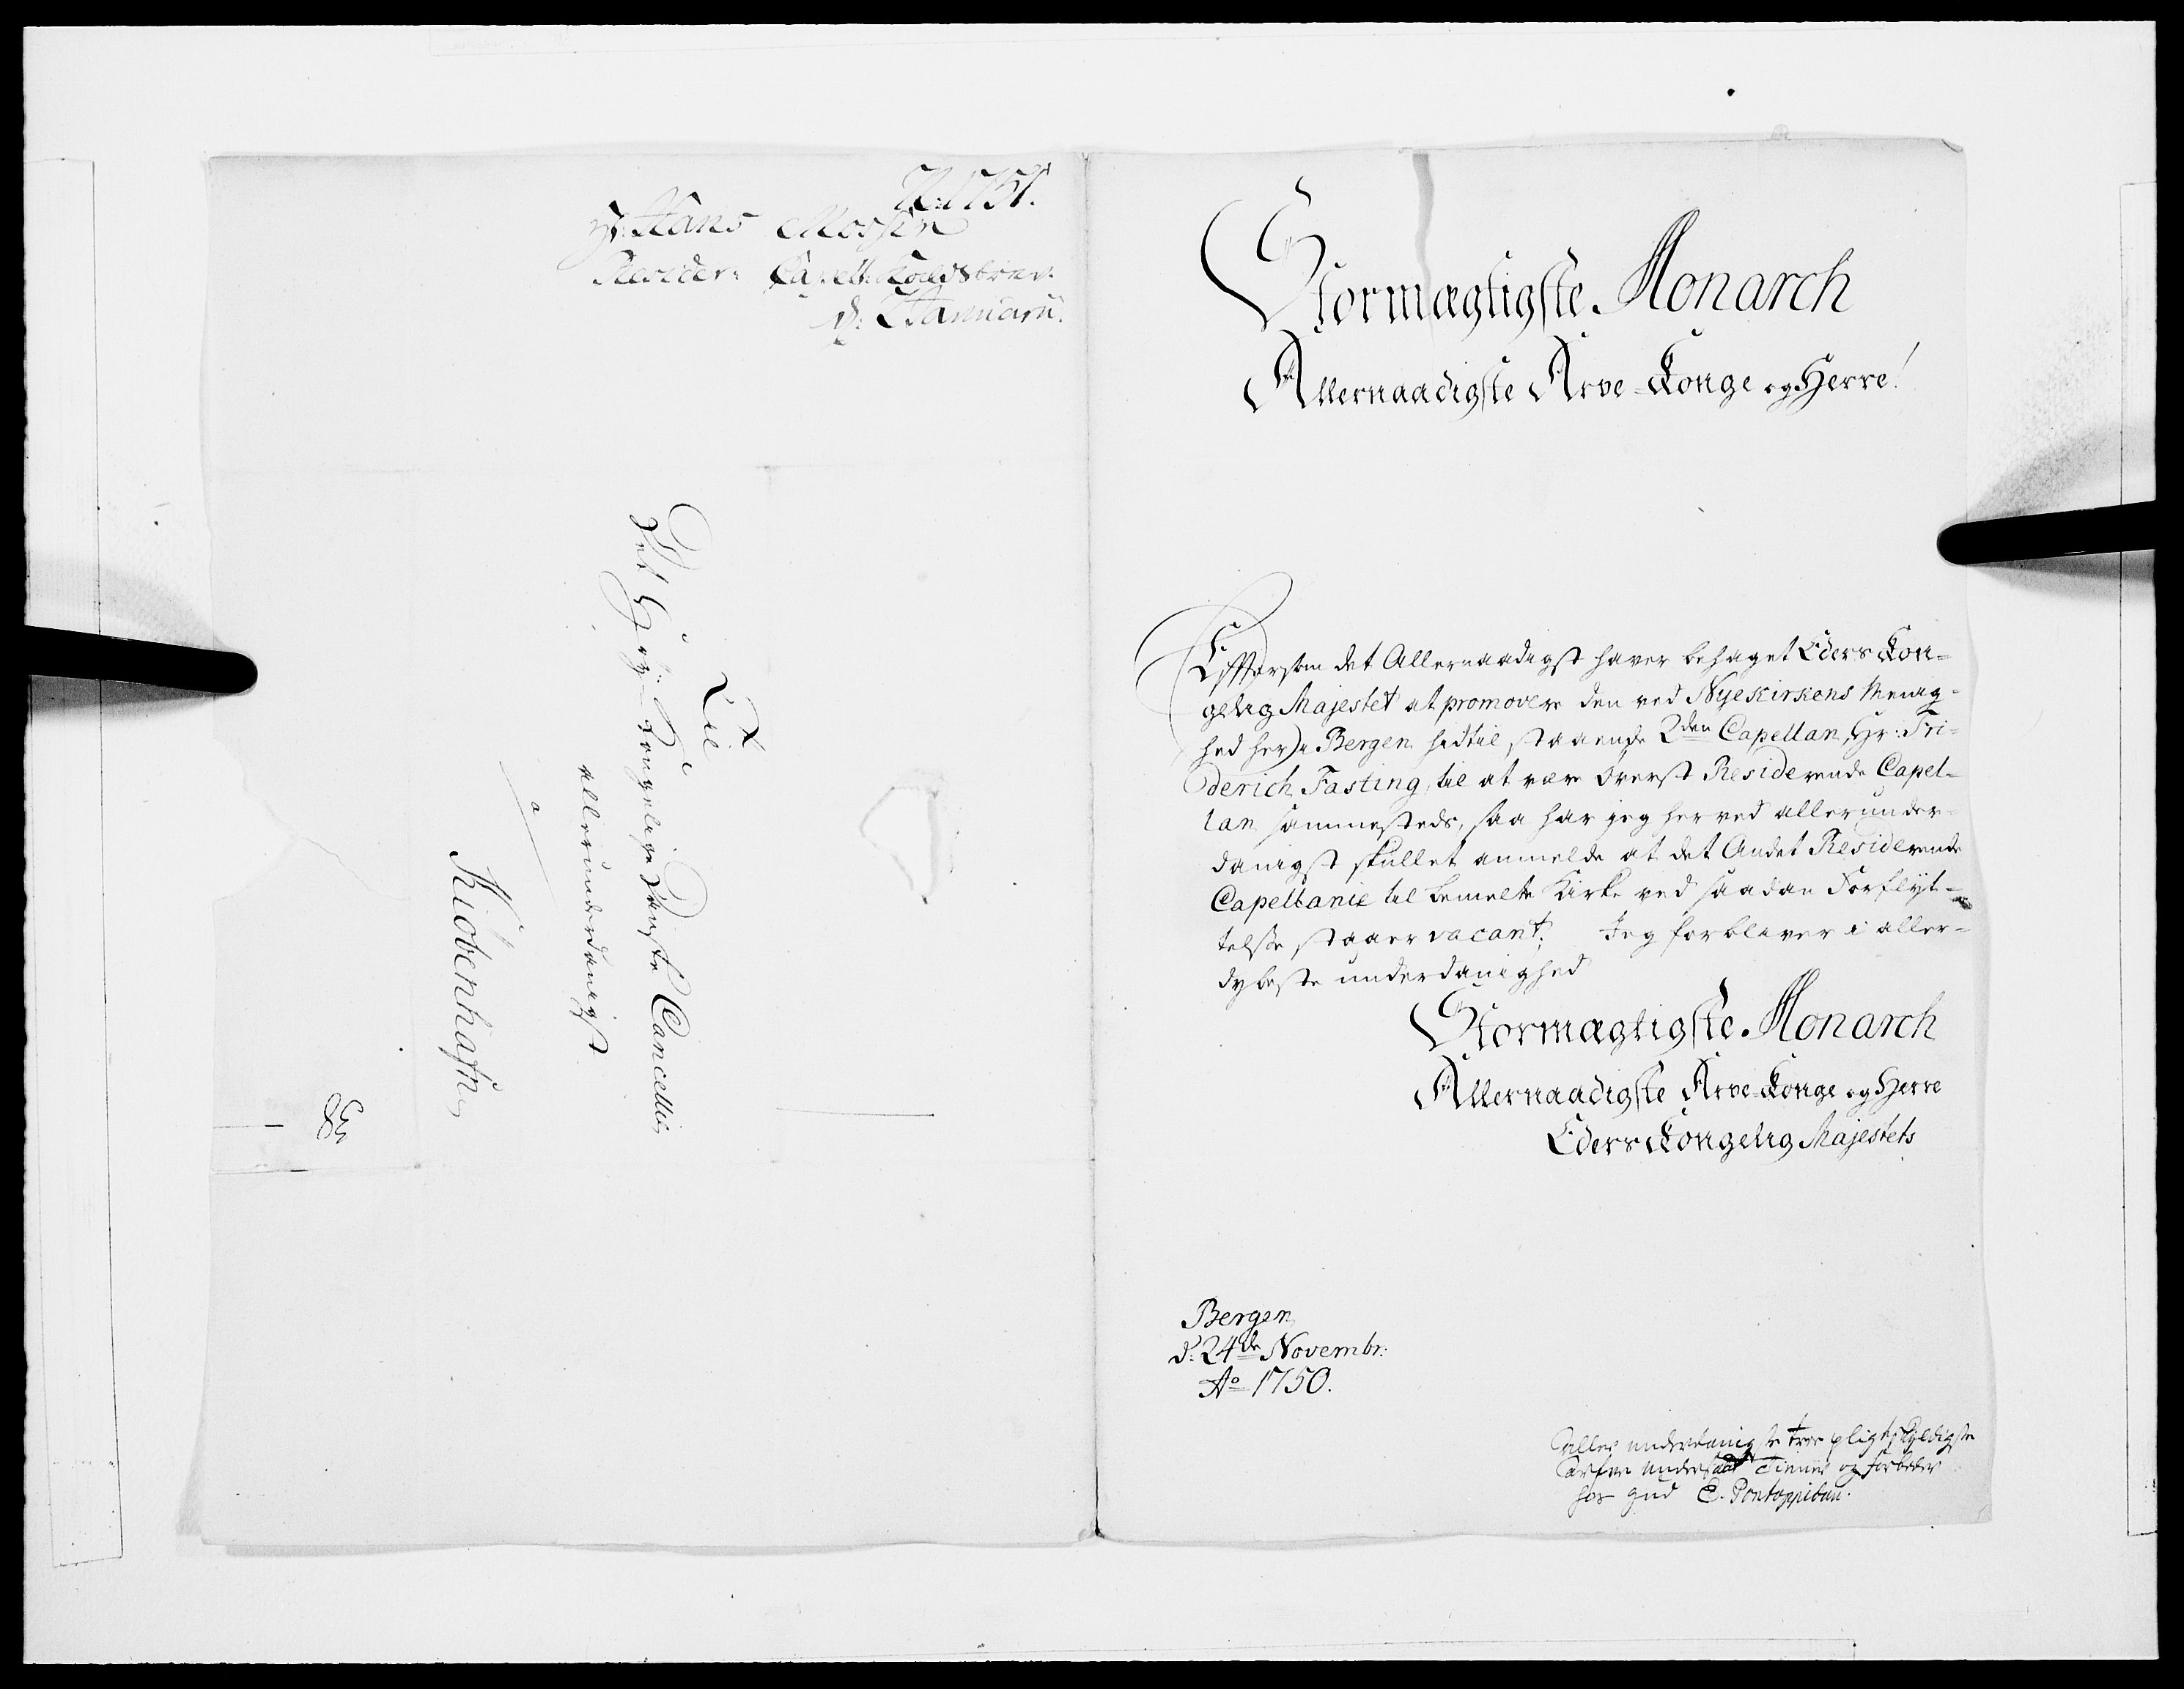 A: 1751.
Hr: Hans Mossin
Resider: Capell: Kaldsbrev.
d: Januarii.
Til
Det Høy-Kongelige Danske Cancellie
allerunderdanigst
a
Kiøbenhafn
38
Stormægtigste Monarch
Allernaadigste Arve-Konge og Herre!
Efftersom det Allernaadigst haver behaget Eders Kon-
gelig Majestet at promovere den ved Nyekirkens Menig-
hed her i Bergen hidtil staaende 2den Capellan, Hr: Fri-
derich Fasting, til at være Øverst Residerende Capel-
lan sammesteds, saa har jeg her ved allerunder-
danigst skullet anmelde at det Andet Residerende
Capellanie til bemelte Kirke ved saadan Forflyt-
telse staaer vacant. Jeg forbliver i aller-
dybeste underdanighed
Stormægtigste Monarch
Allernaadigste Arve-Konge og Herre
Eders Kongelig Majestets
Bergen
d: 24de Novembr:
Ao 1750.
allerunderdanigste troe pligtskyldigste
arfve undersaat Tiener og forbeder
hos Gud E. Pontoppidan.